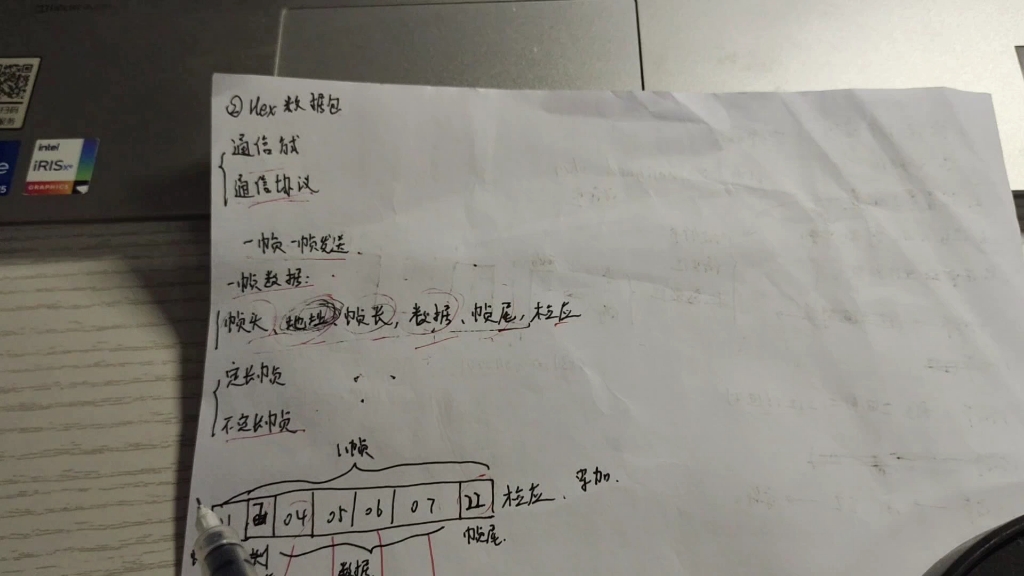 intel
iRIS Xe
GRAPHICS
② Hex 数据包
通信方式
通信协议
一帧一帧发送.
一帧数据:
帧头、地址 帧长, 数据、帧尾, 检应
定长帧
不定长帧
1帧
04 05 06 07 22 检应. 累加.
帧尾.
数据